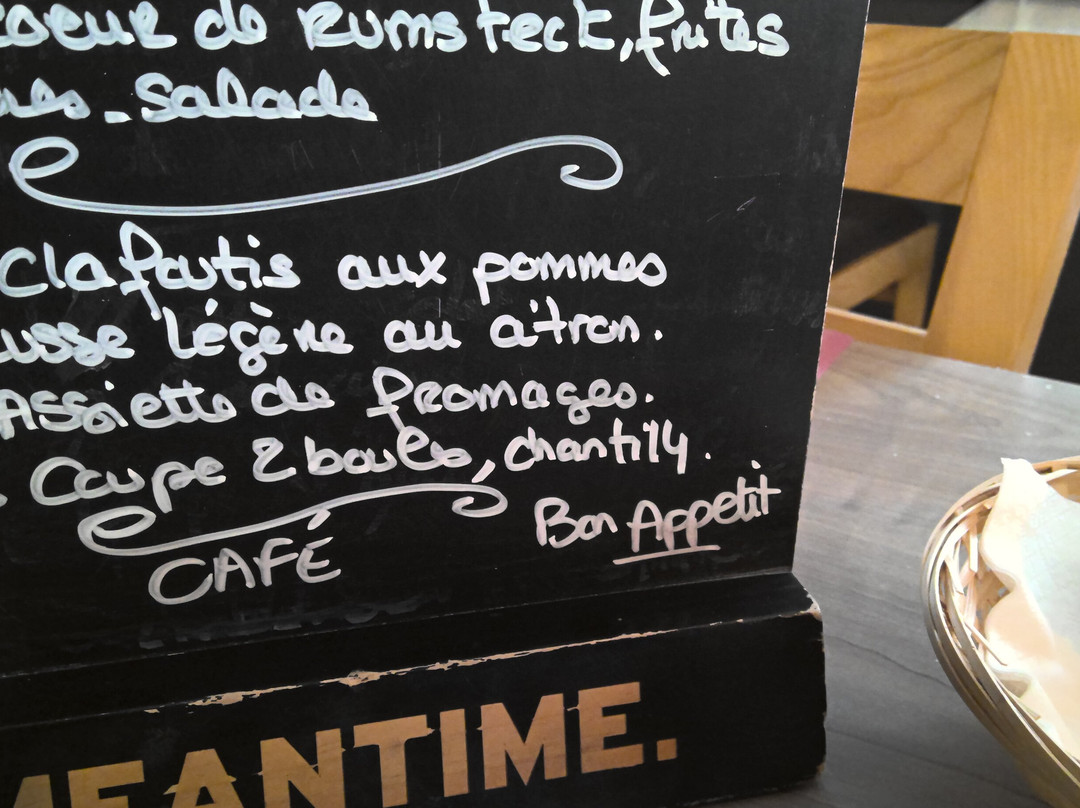 coeur de Rumsteck, frites
salade
Clafoutis aux pommes
usse légère au citron.
Assiette de fromages.
Coupe 2 boules, chantilly.
CAFÉ
Bon Appetit
MEANTIME.